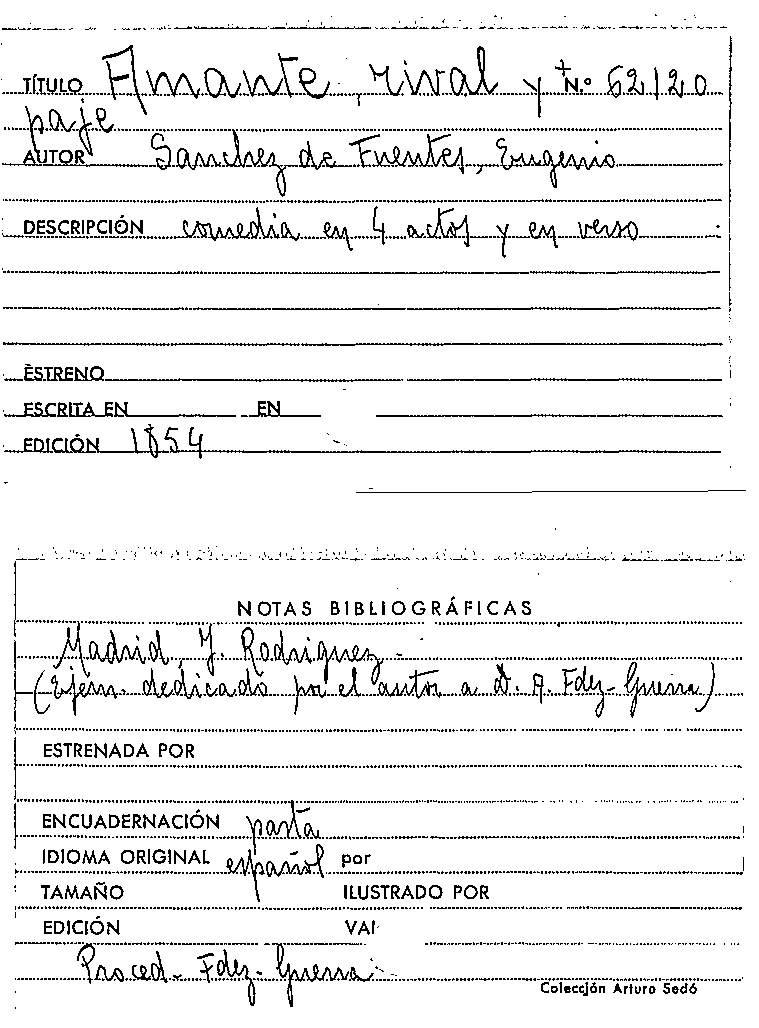 TÍTULO Amante, rival y N.º 62120
paje
AUTOR Sanchez de Fuentes, Eugenio
DESCRIPCIÓN comedia en 4 actos y en verso
ESTRENO
ESCRITA EN EN
EDICIÓN 1854
NOTAS BIBLIOGRÁFICAS
Madrid, J. Rodriguez -
(Ejem. dedicado por el autor a D. A. Fdez-Guerra)
ESTRENADA POR
ENCUADERNACIÓN pasta
IDIOMA ORIGINAL español por
TAMAÑO ILUSTRADO POR
EDICIÓN VAL
Proced- Fdez-Guerra
Colección Arturo Sedó